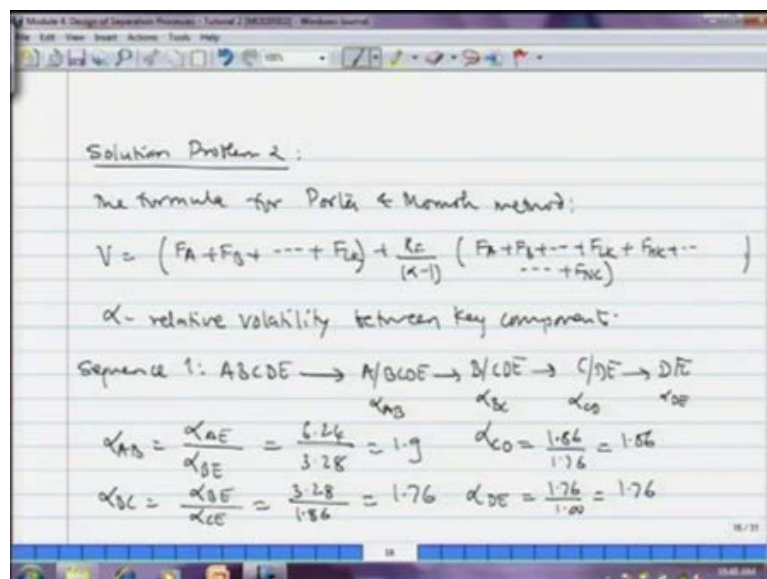 Module 4 Design of Separation Processes - Tutorial 2 - Windows Journal
File Edit View Insert Actions Tools Help
Solution Problem 2 :
The formula for Porter & Momoh method:
V = (F_A + F_B + ---- + F_LK) + R_F/(α-1) (F_A + F_B + --- + F_LK + F_HK + --
---- + F_NC) )
α - relative volatility between key component.
Sequence 1: ABCDE → A/BCDE → B/CDE → C/DE → D/E
α_AB α_BC α_CD α_DE
α_AB = α_AE/α_BE = 6.24/3.28 = 1.9 α_CD = 1.86/1.76 = 1.86
α_BC = α_BE/α_CE = 3.28/1.86 = 1.76 α_DE = 1.76/1.00 = 1.76